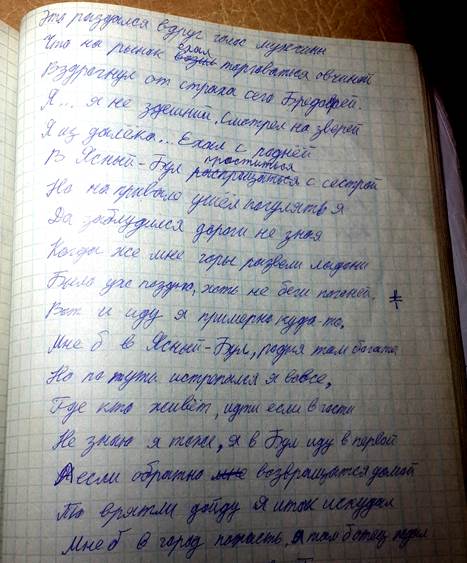 Это раздался вдруг голос мужчины
Что на рынок ехал торговаться овчиной
Вздрогнул от страха сего Бродобрей.
Я... я не здешний. Смотрел на зверей
Я из далека... Ехал с роднёй
В Ясный-Бул проститься с сестрой
Но на привале ушёл погулять я
Да заблудился дороги не зная
Когда же мне горы развели ладони
Было уже поздно, хоть не беги погоней.
Вот и иду я примерно куда-то.
Мне б в Ясный-Бул, родня там богата
Но по пути истрепался я вовсе,
Где кто живёт, идти если в гости
Не знаю я тоже, я в Бул иду в первой
А если обратно возвращуатся домой
То врятли дойду я итак исхудал
Мне б в город попасть, я там б отец